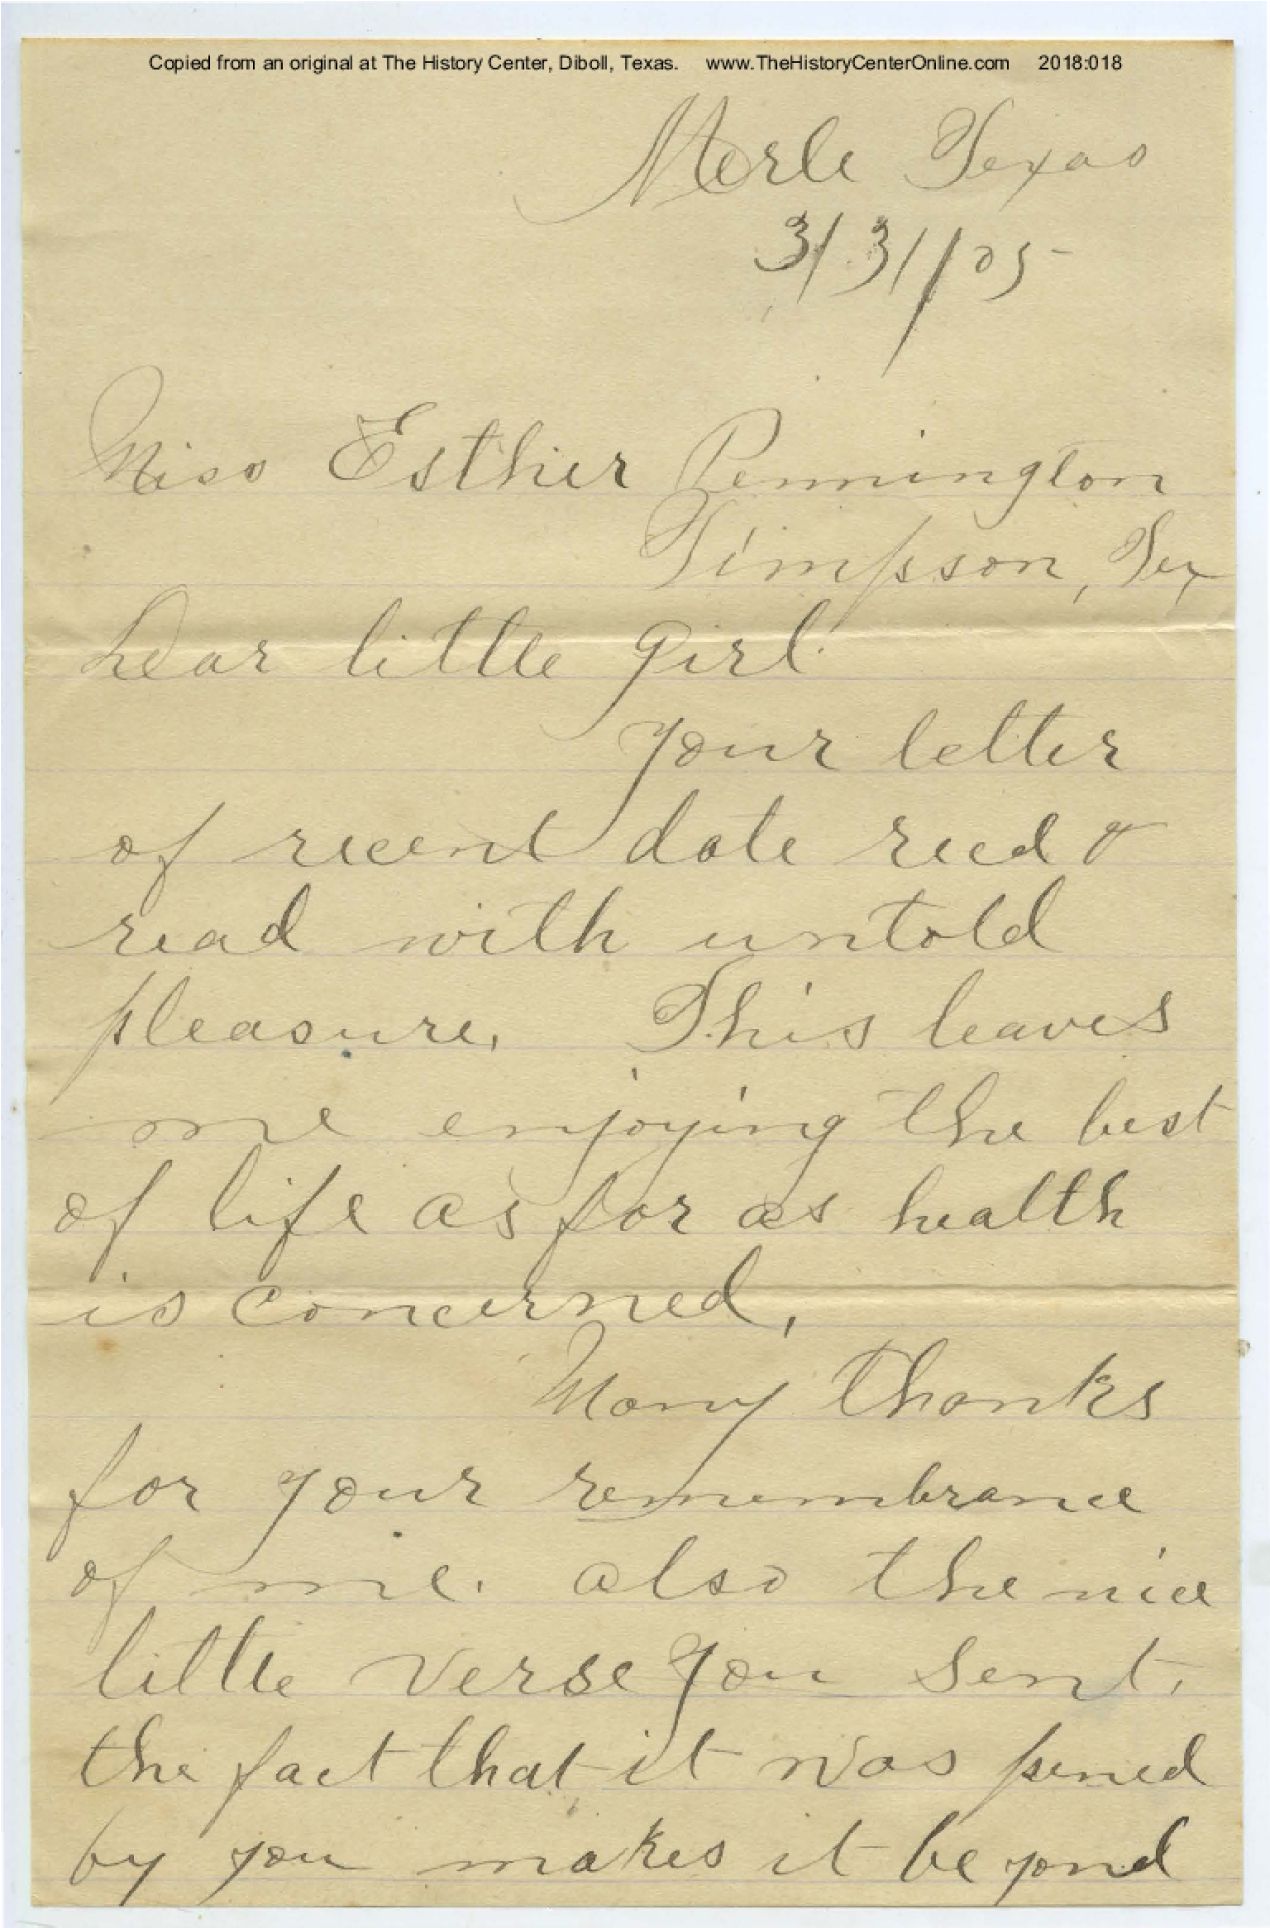 Copied from an original at The History Center, Diboll, Texas. www.TheHistoryCenterOnline.com 2018:018
Merle Texas
3/31/05
Miss Esther Pennington
Timpson, Tex
Dear little girl
your letter
of recent date recd &
read with untold
pleasure. This leaves
me enjoying the best
of life as far as health
is concerned,
Many thanks
for your remembrance
of me. also the nice
little verse you sent,
the fact that it was pened
by you makes it beyond